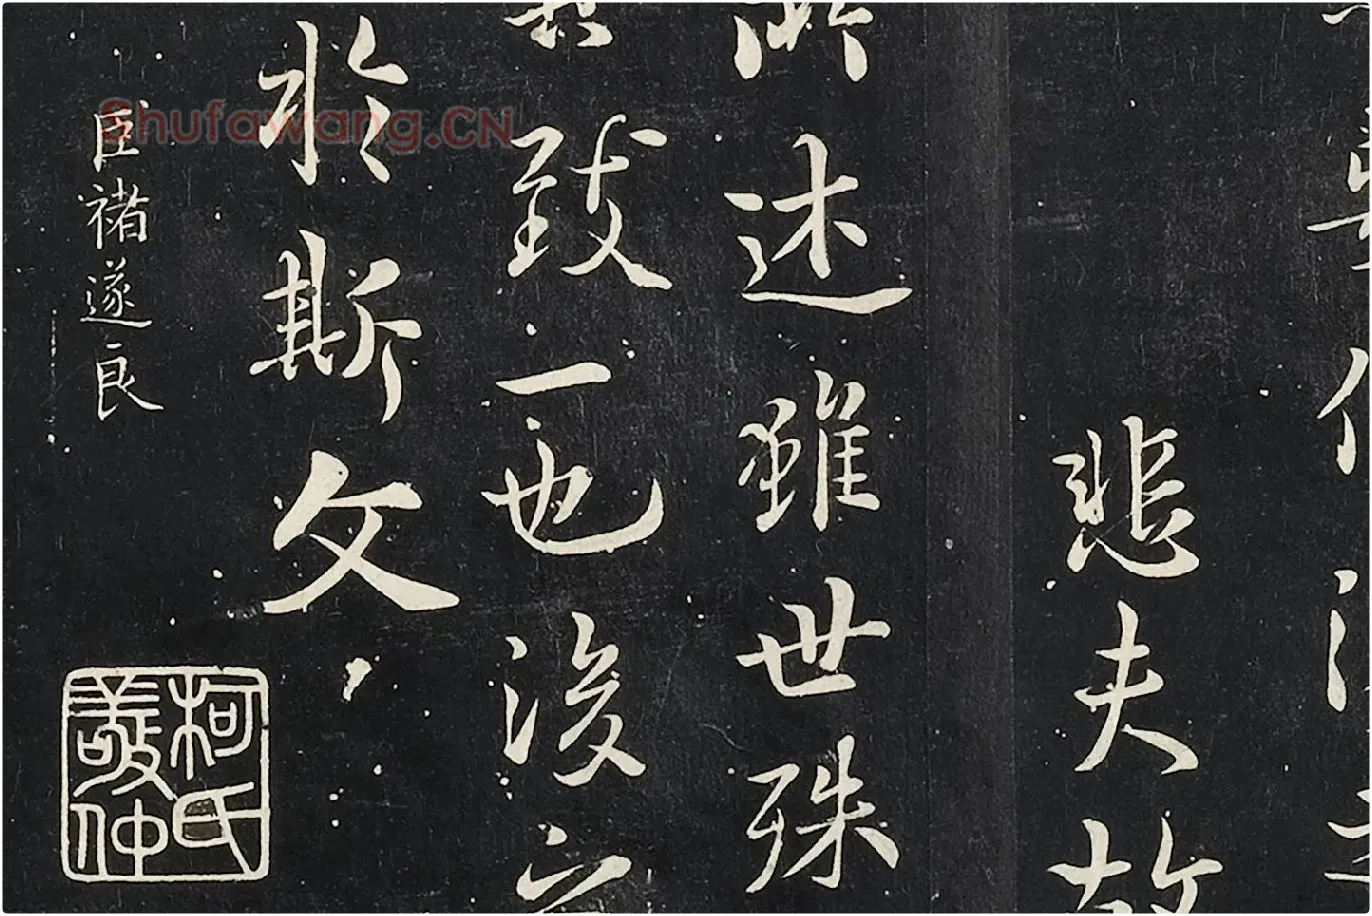 悲夫故
所述雖世殊
致一也後之
於斯文
臣褚遂良
柯氏
敬仲
Shufawang.CN